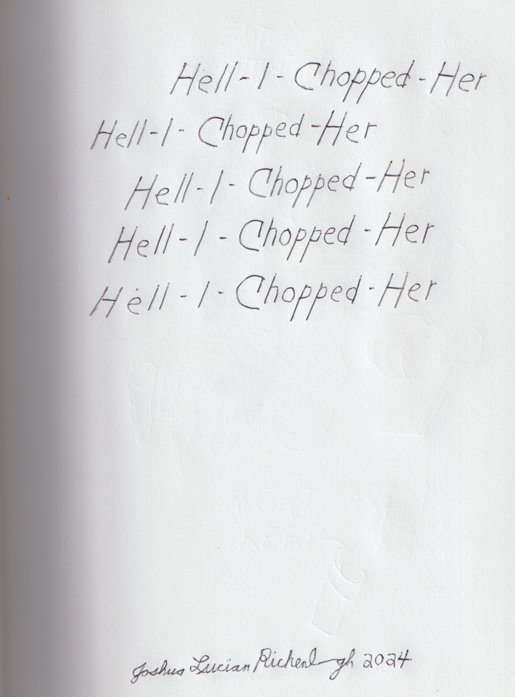 Hell-I-Chopped-Her
Hell-I-Chopped-Her
Hell-I-Chopped-Her
Hell-I-Chopped-Her
Hell-I-Chopped-Her
Joshua Lucian 2024